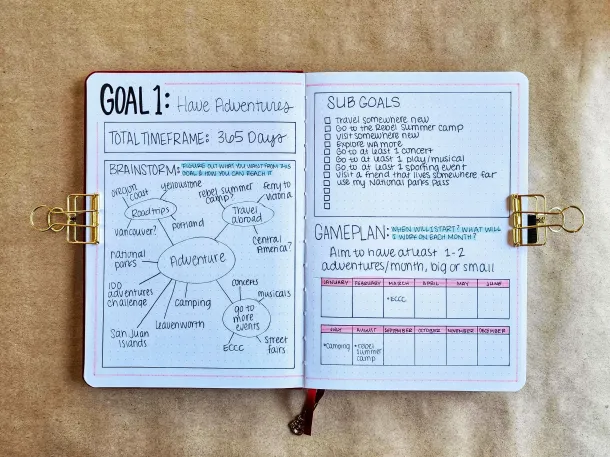 GOAL 1: Have Adventures
TOTAL TIMEFRAME: 365 Days
BRAINSTORM: FIGURE OUT WHAT YOU WANT FROM THIS
GOAL & HOW YOU CAN REACH IT
oregon
coast
yellowstone
Roadtrips
vancouver?
portland
rebel summer
camp?
ferry to
victoria
Travel
abroad
central
America?
Adventure
national
parks
100
adventures
challenge
San Juan
Islands
Leavenworth
camping
concerts
musicals
go to
more
events
ECCC
street
fairs
SUB GOALS
Travel somewhere new
Go to the Rebel Summer camp
Visit somewhere new
Explore WA more
Go to at least 1 concert
Go to at least 1 play/musical
Go to at least 1 sporting event
Visit a friend that lives somewhere far
use my National Parks Pass
GAMEPLAN: WHEN WILL I START? WHAT WILL
I WORK ON EACH MONTH?
Aim to have at least 1-2
adventures/month, big or small
JANUARY FEBRUARY MARCH APRIL MAY JUNE
•ECCC
JULY AUGUST SEPTEMBER OCTOBER NOVEMBER DECEMBER
•camping •rebel
summer
camp